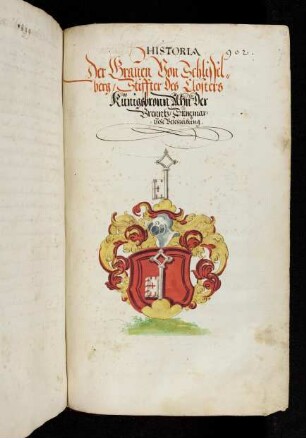 HISTORIA
902.
Der Grauen Von Schlissel-
berg / Stiffter des Closters
Künigsbronn An der
Brentz